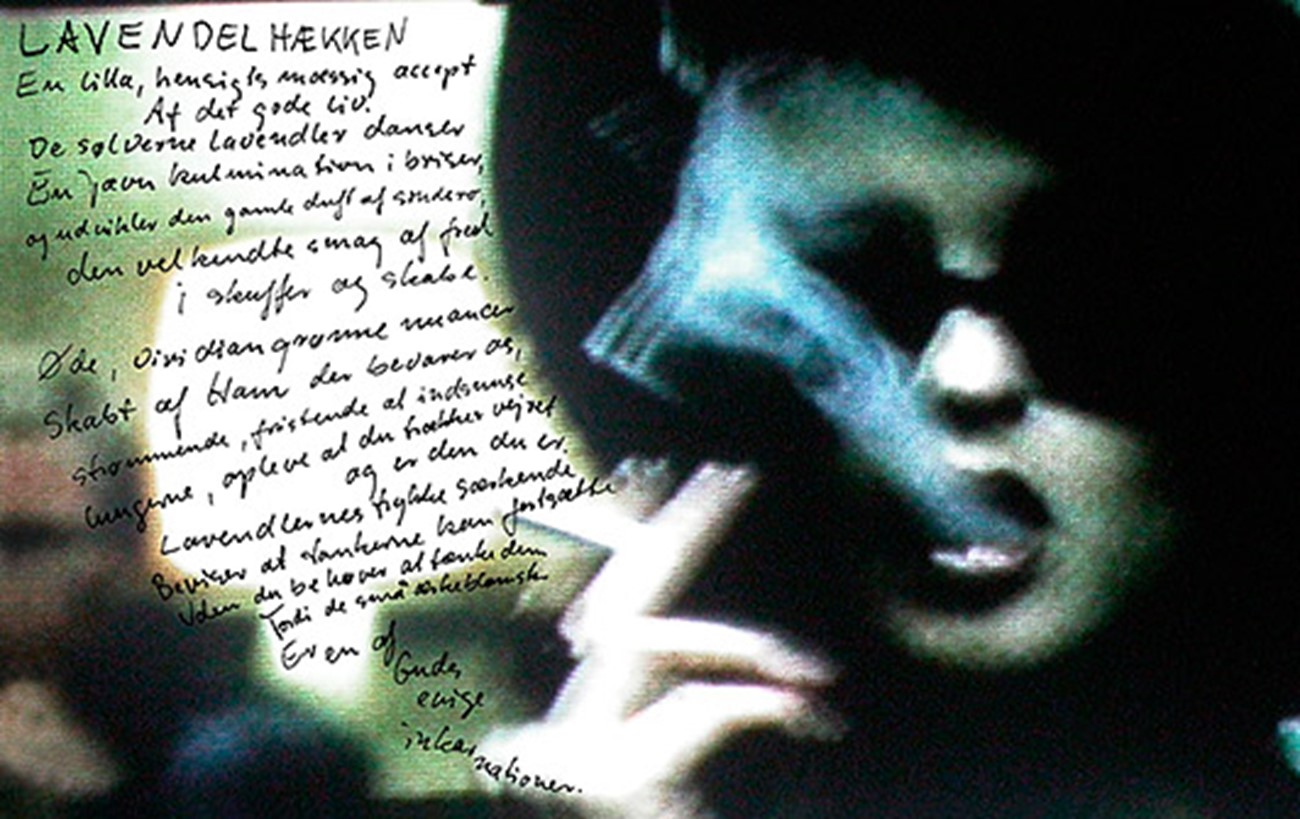 LAVENDELHÆKKEN
En lilla, hensigtsmæssig accept
Af det gode liv.
De sølverne lavendler danser
En jævn kulmination i briser,
og udvikler den gamle duft af søndero,
den velkendte smag af fred
i skuffer og skabe.
Øde, viridiangrønne nuancer
Skabt af Ham der bevarer os,
strømmende, fristende at indsnuse
lungerne, opleve at du trækker vejret
og er den du er.
Lavendlernes rigtige
Beviser at tankerne kan fortsætte
Uden du behøver at tænke dem
Fordi de små æskeblomster
Er en af
Guds
evige
inkarnationer.